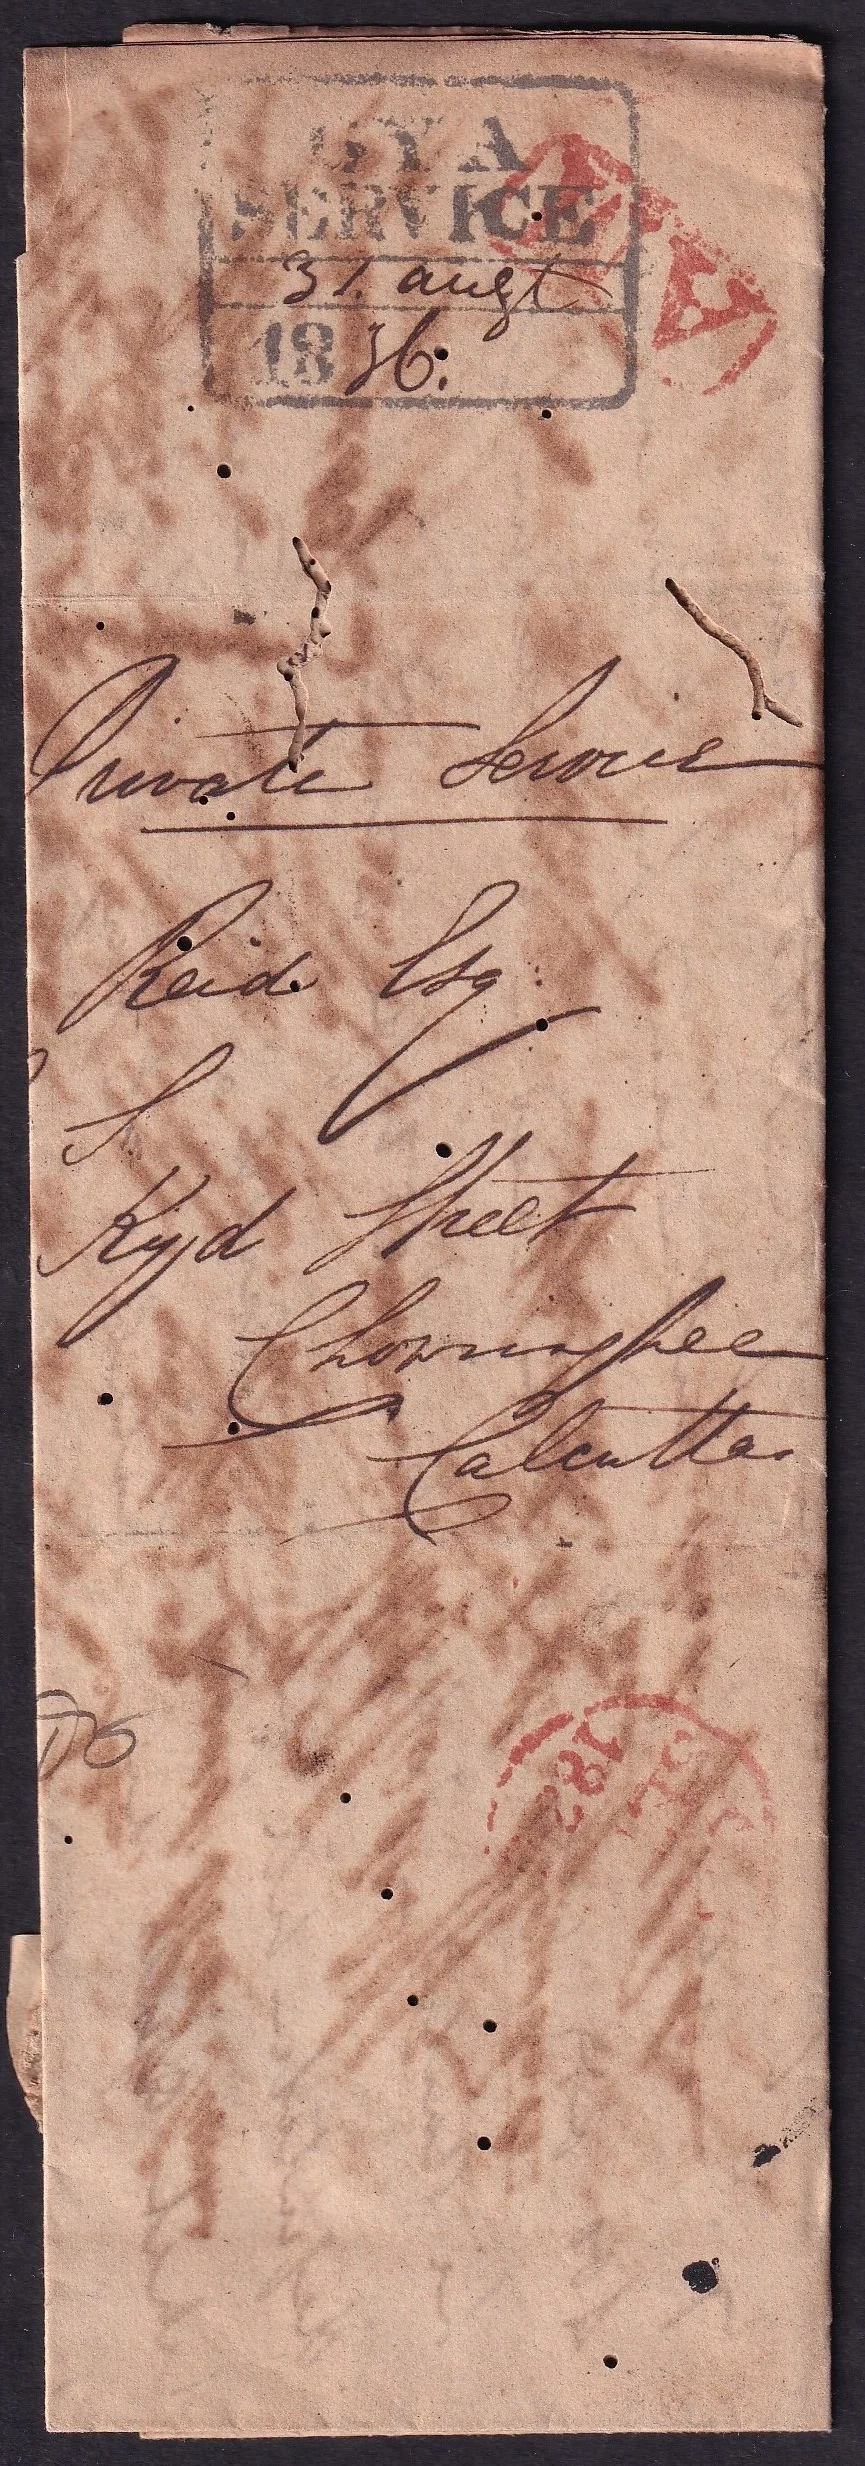 GYA
SERVICE
31. augt
1836.
Private Service
Reid Esq:
S.
Kyd Street
Chowringhee
Calcutta